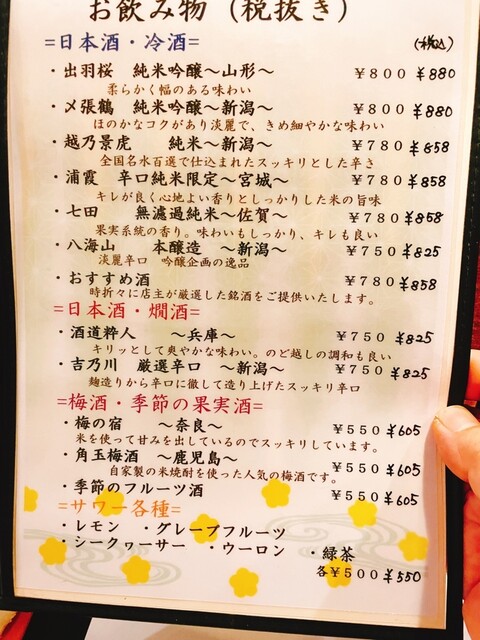 お飲み物（税抜き）
=日本酒・冷酒= (税込)
・出羽桜 純米吟醸～山形～ ￥８００ ¥880
柔らかく幅のある味わい
・〆張鶴 純米吟醸～新潟～ ￥８００ ¥880
ほのかなコクがあり淡麗で、きめ細やかな味わい
・越乃景虎 純米～新潟～ ￥７８０ ¥858
全国名水百選で仕込まれたスッキリとした辛さ
・浦霞 辛口純米限定～宮城～ ￥７８０ ¥858
キレが良く心地よい香りとしっかりした米の旨味
・七田 無濾過純米～佐賀～ ￥７８０ ¥858
果実系統の香り。味わいもしっかり、キレも良い
・八海山 本醸造 ～新潟～ ￥７５０ ¥825
淡麗辛口 吟醸企画の逸品
・おすすめ酒 ￥７８０ ¥858
時折々に店主が厳選した銘酒をご提供いたします。
=日本酒・燗酒=
・酒道粋人 ～兵庫～ ￥７５０ ¥825
キリッとして爽やかな味わい。のど越しの調和も良い
・吉乃川 厳選辛口 ～新潟～ ￥７５０ ¥825
麹造りから辛口に徹して造り上げたスッキリ辛口
=梅酒・季節の果実酒=
・梅の宿 ～奈良～ ￥５５０ ¥605
米を使って甘みを出しているのでスッキリしています。
・角玉梅酒 ～鹿児島～ ￥５５０ ¥605
自家製の米焼酎を使った人気の梅酒です。
・季節のフルーツ酒 ￥５５０ ¥605
=サワー各種=
・レモン ・グレープフルーツ
・シークヮーサー ・ウーロン ・緑茶
各￥５００ ¥550